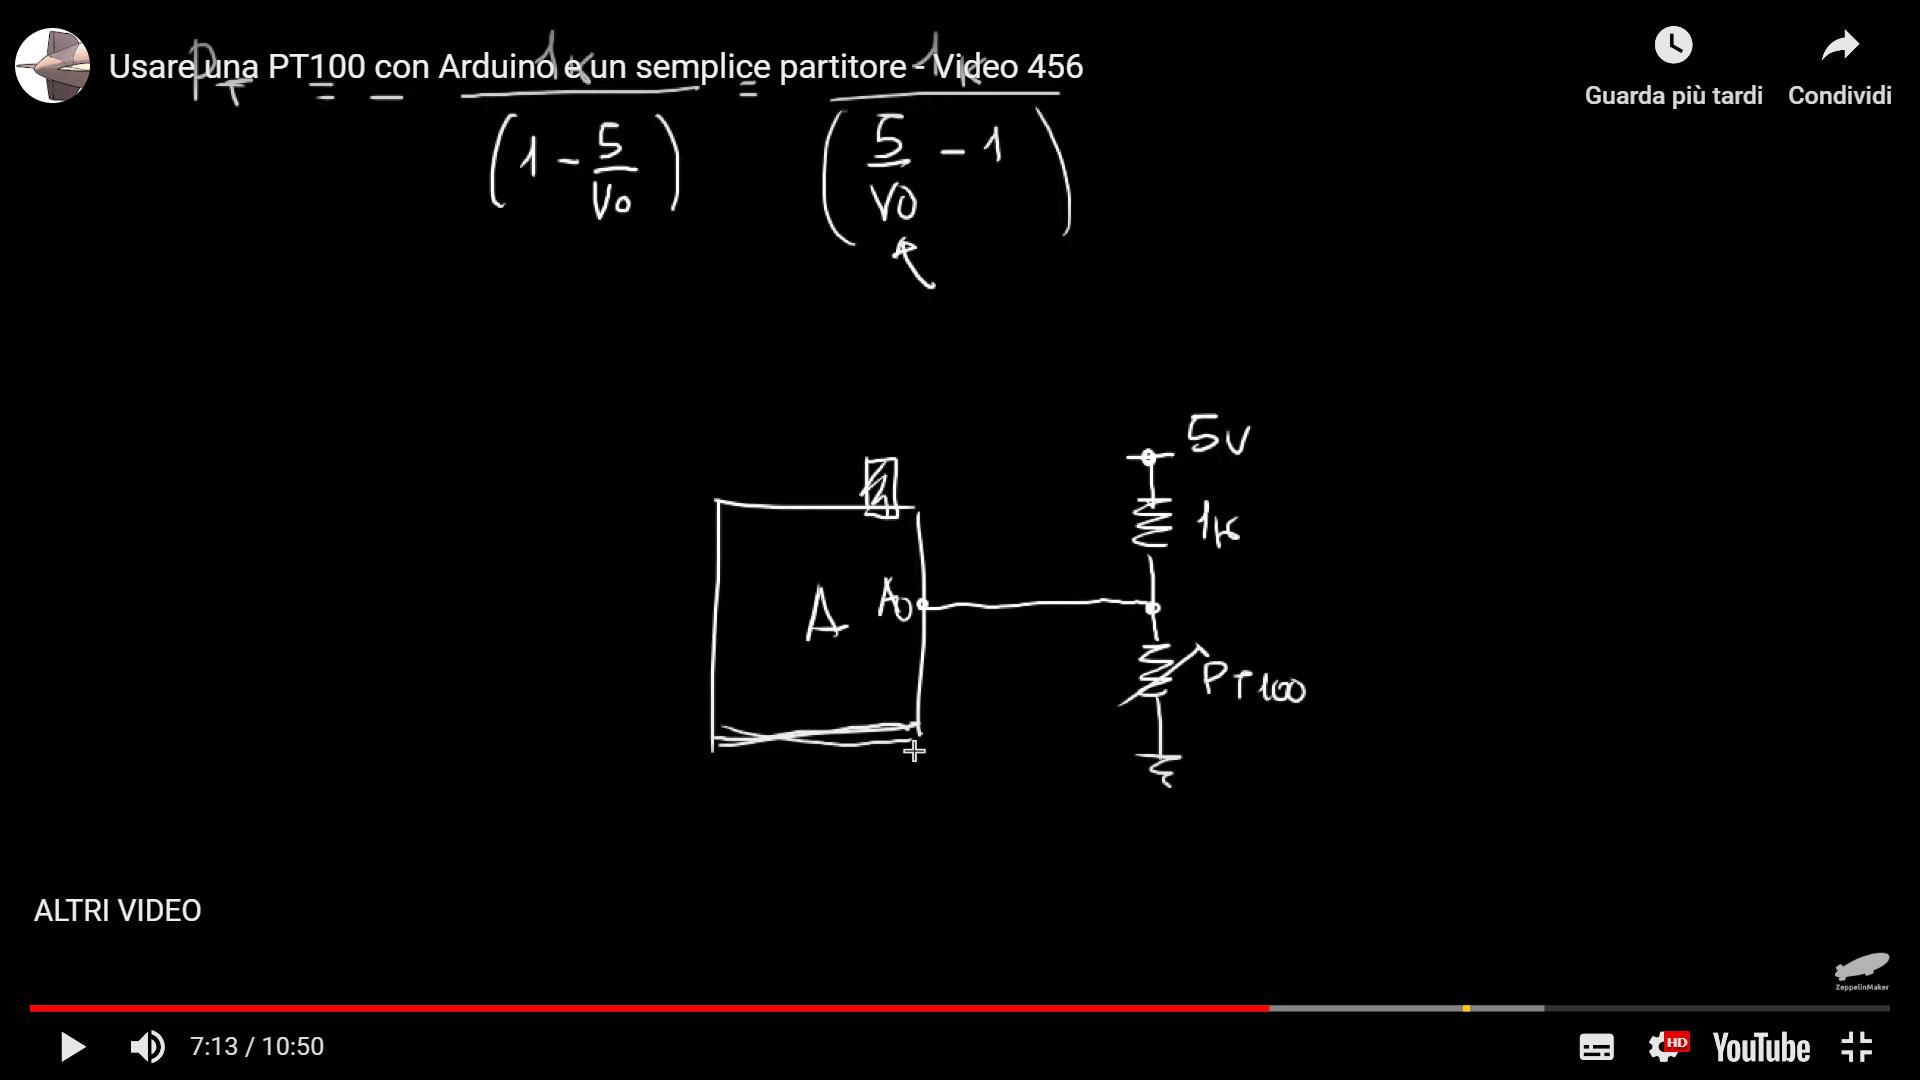 Usare una PT100 con Arduino e un semplice partitore - Video 456
Guarda più tardi
Condividi
PT = - 1K = 1K
(1 - 5/Vo) (5/Vo - 1)
5V
1K
A A0
PT100
ALTRI VIDEO
ZeppelinMaker
7:13 / 10:50
HD
YouTube